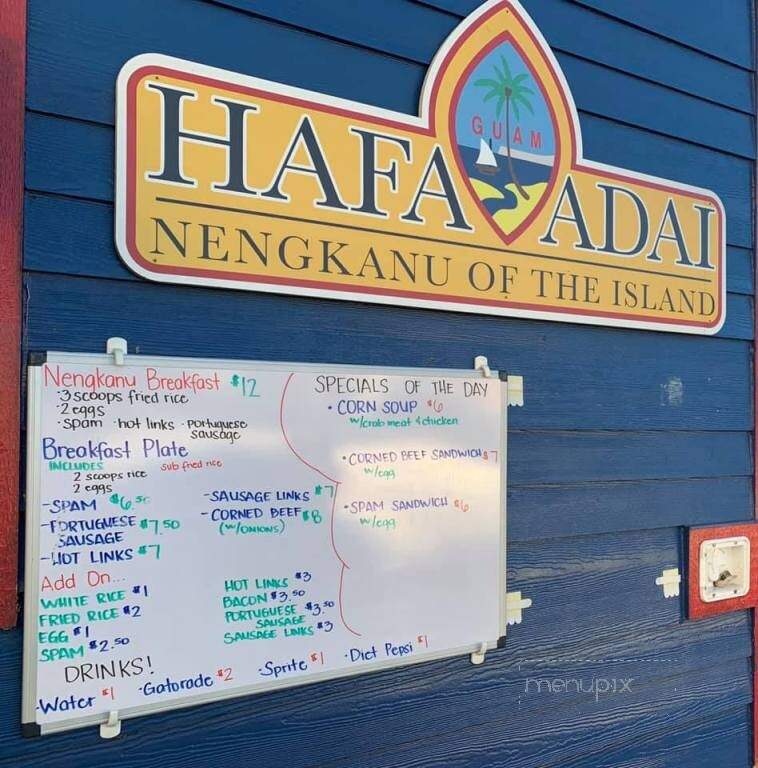 HAFA ADAI
GUAM
NENGKANU OF THE ISLAND
Nengkanu Breakfast $12
·3 scoops fried rice
·2 eggs
·spam ·hot links ·portuguese
sausage
Breakfast Plate
INCLUDES sub fried rice
2 scoops rice
2 eggs
-SPAM $6.50
-PORTUGUESE $7.50
SAUSAGE
-HOT LINKS $7
-SAUSAGE LINKS $7
-CORNED BEEF $8
(w/ONIONS)
Add On...
WHITE RICE $1
FRIED RICE $2
EGG $1
SPAM $2.50
HOT LINKS $3
BACON $3.50
PORTUGUESE $3.50
SAUSAGE
SAUSAGE LINKS $3
SPECIALS OF THE DAY
•CORN SOUP $6
w/crab meat & chicken
•CORNED BEEF SANDWICH $7
w/egg
•SPAM SANDWICH $6
w/egg
DRINKS!
-Water $1 ·Gatorade $2 ·Sprite $1 ·Diet Pepsi $1
menupix